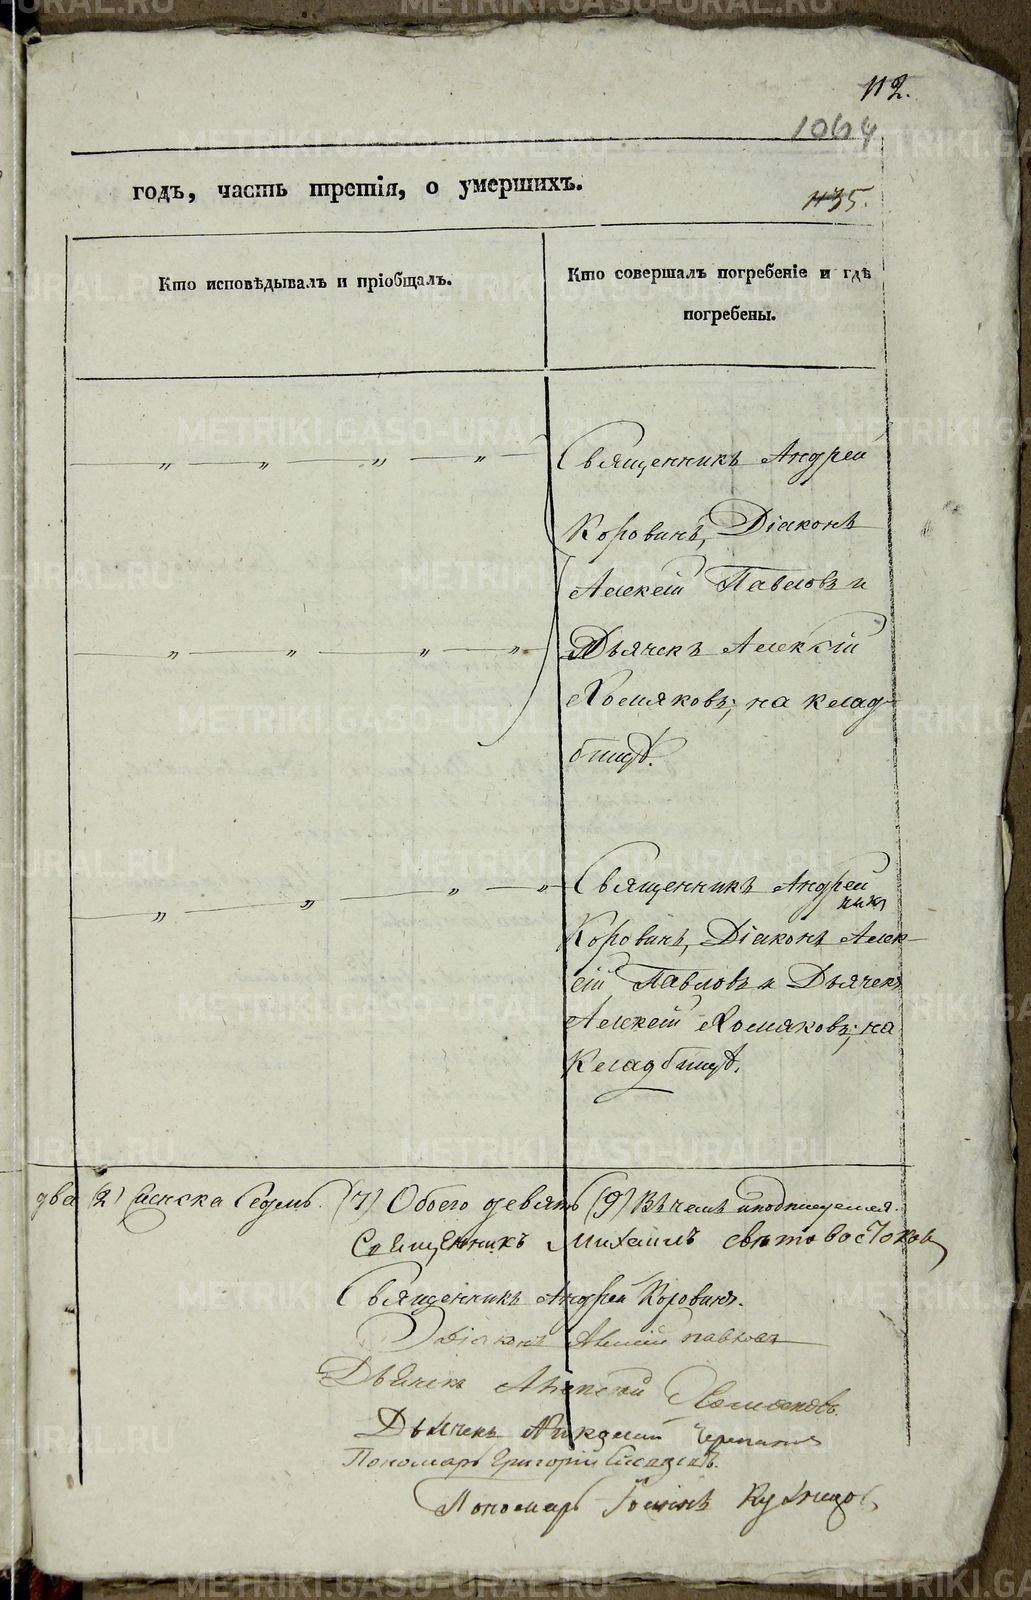 112.
1064
1135.
годъ, часть третія, о умершихъ.
Кто исповѣдывалъ и пріобщалъ.
Кто совершалъ погребеніе и гдѣ
погребены.
Священникъ Андрей
Коровинъ, Діаконъ
Алексій Павловъ и
Дьячекъ Алексій
Хомяковъ; на клад-
бищѣ.
Священникъ Андрей
Коровинъ, Діаконъ Алек-
сій Павловъ и Дьячекъ
Алексій Хомяковъ; на
Кладбищѣ.
два (2) Женска Седмь (7) Обоего девять (9) Въ чемъ и подписуемся.
Священникъ Михаилъ Свѣтовостоковъ
Священникъ Андрей Коровинъ.
Діаконъ Алексій Павловъ
Дьячекъ Алексій Хомяковъ.
Дьячекъ
Пономарь Григорій
Пономарь Іоаннъ Кузнецовъ
METRIKI.GASO-URAL.RU